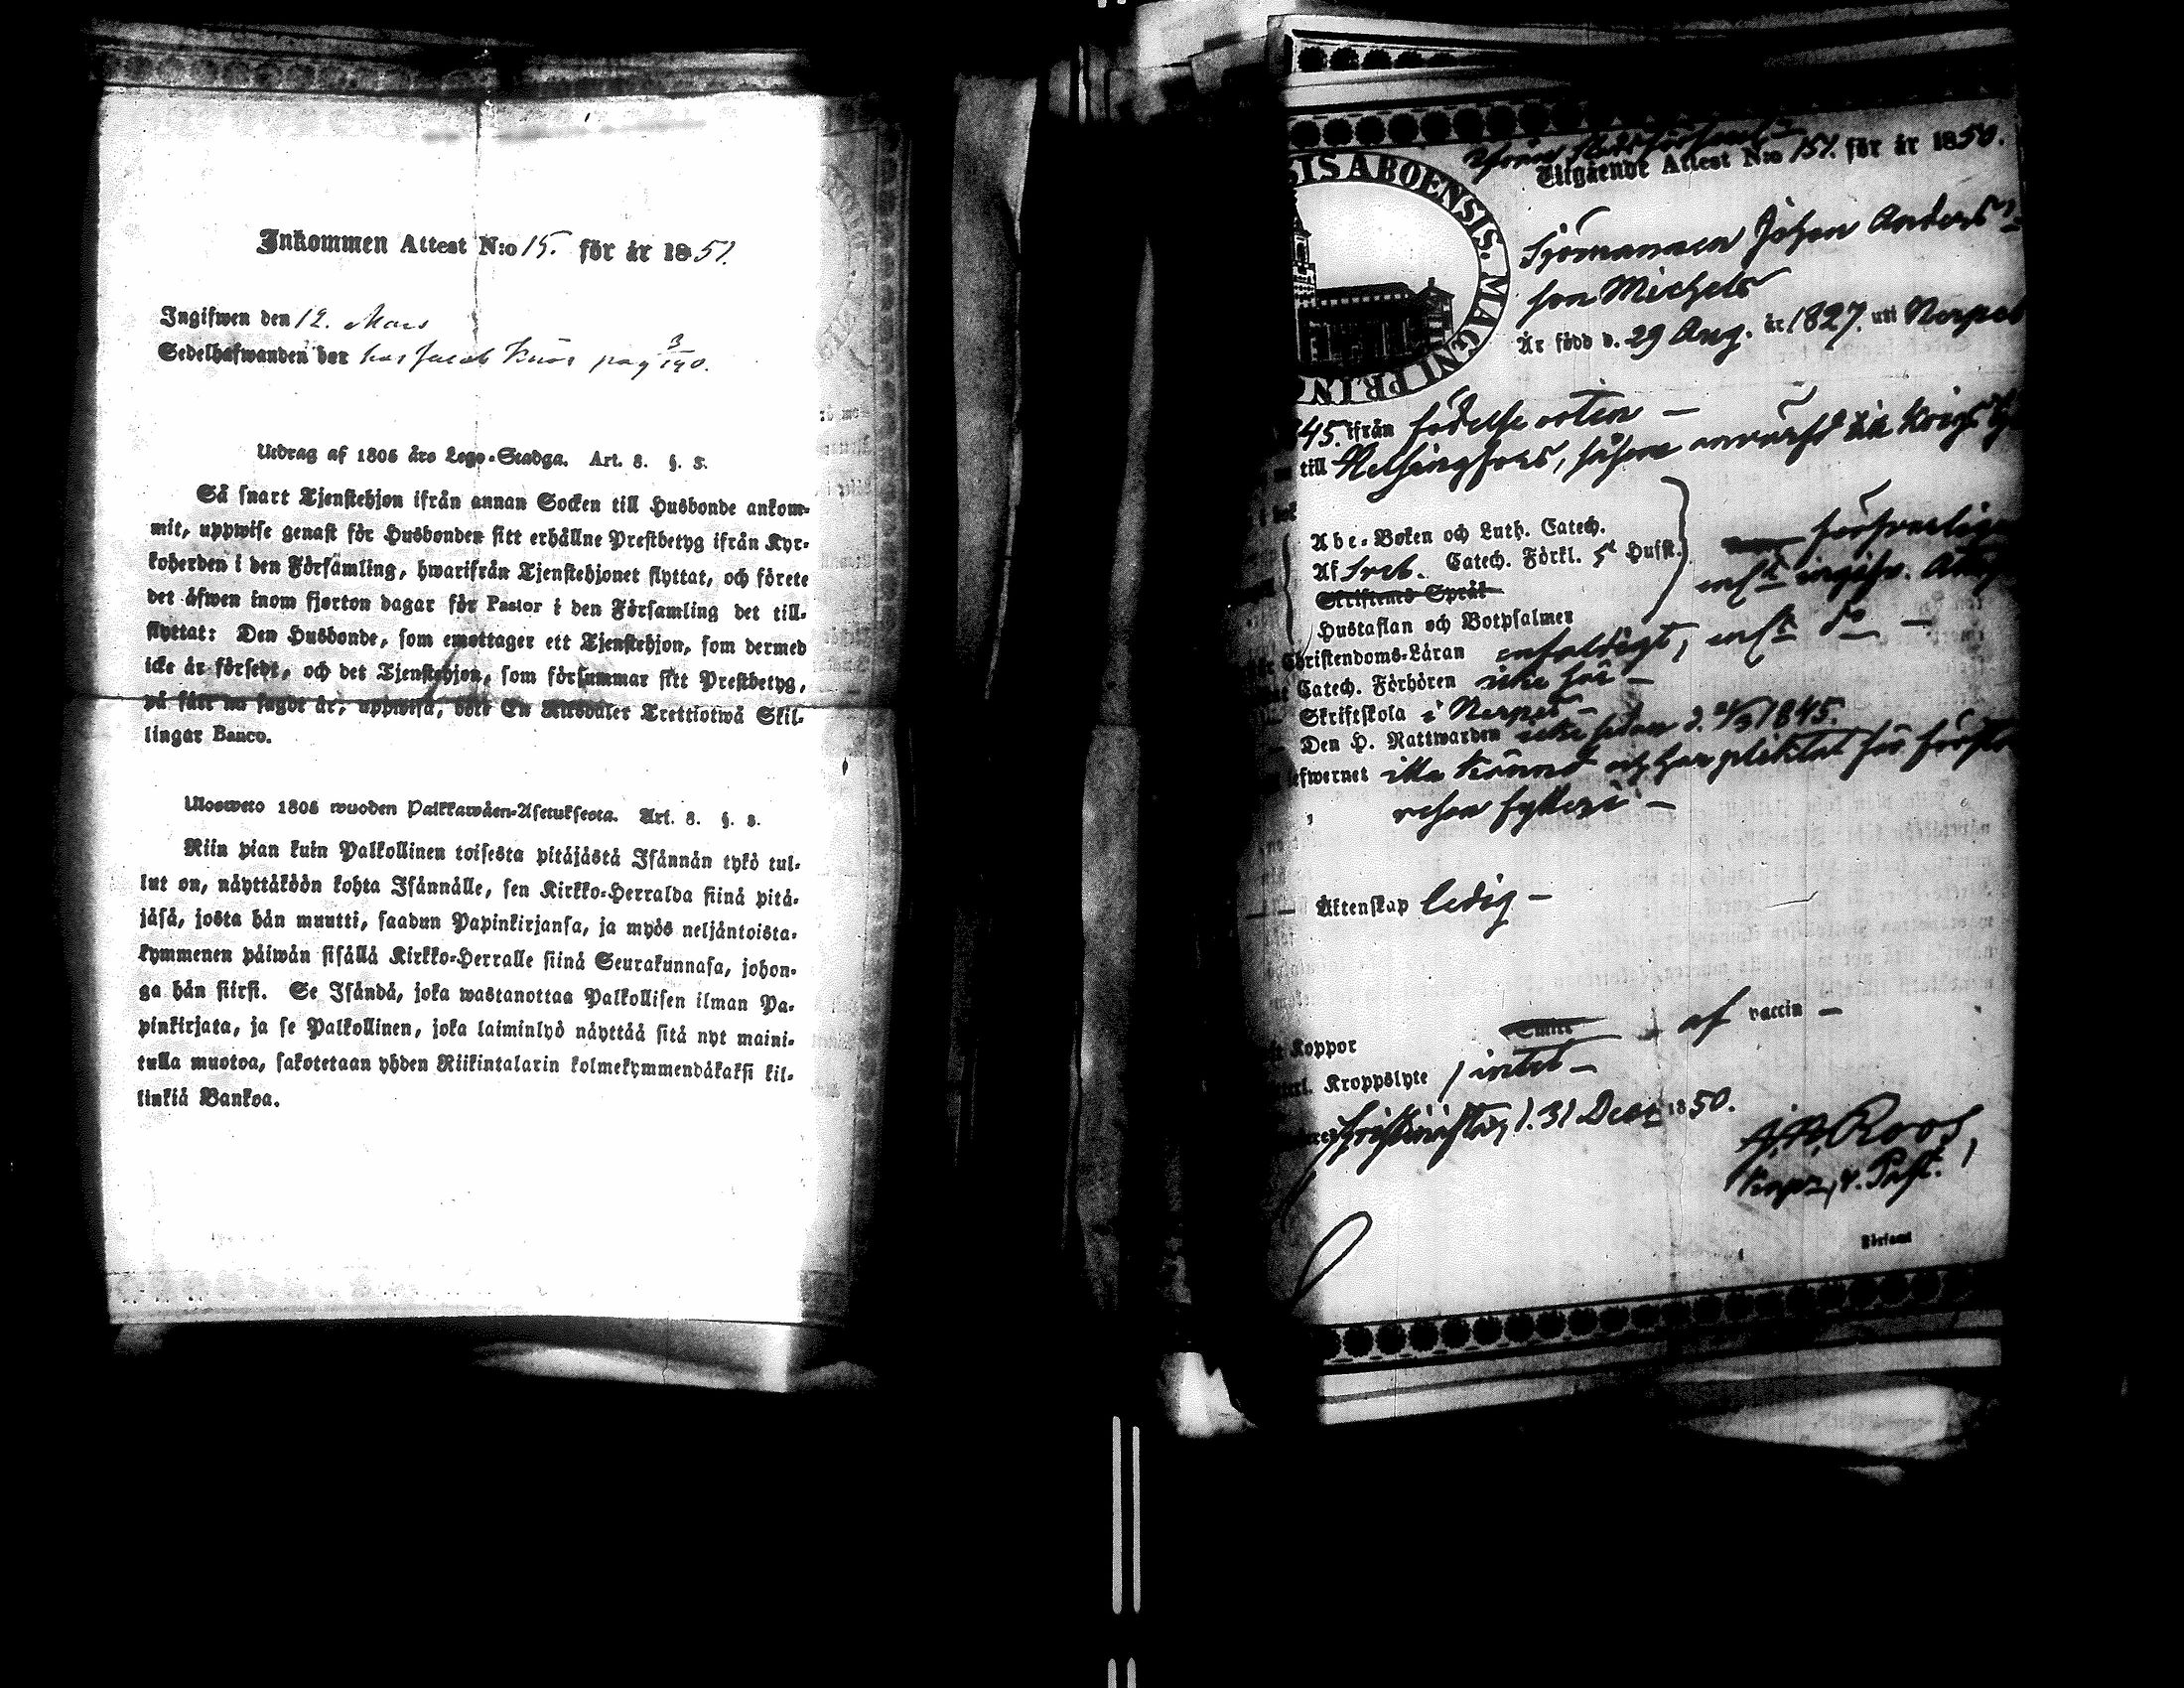 Inkommen Attest N:o 15. för år 1851.
Ingifwen den 12. Mars
Sedelhafwanden bor hos Jacob Knös pag 3/190.
Utdrag af 1805 års Lego-Stadga. Art. 8. §. 3.
Så snart Tjenstehjon ifrån annan Socken till Husbonde ankom-
mit, uppwise genast för Husbonden sitt erhållne Prestbetyg ifrån Kyr-
koherden i den Församling, hwarifrån Tjenstehjonet flyttat, och förete
det åfwen inom fjorton dagar för Pastor i den Församling det till-
flyttat: Den Husbonde, som emottager ett Tjenstehjon, som dermed
icke är försedt, och det Tjenstehjon, som försummar sitt Prestbetyg,
på sätt nu sagdt är, uppwisa, böte En Riksdaler Trettiotwå Skil-
lingar Banco.
Ulosweto 1805 wuoden Palkkawåen-Asetuksesta. Art. 8. §. 3.
Niin pian kuin Palkollinen toisesta pitäjästå Isånnån tykö tul-
lut on, nåyttåköön kohta Isånnålle, sen Kirkko-Herralda siinå pitå-
jåså, josta hån muutti, saadun Papinkirjansa, ja myös neljåntoista-
kymmenen påiwån sisållå Kirkko-Herralle siinå Seurakunnasa, johon-
ga hån siirsi. Se Isåndå, joka wastanottaa Palkollisen ilman Pa-
pinkirjata, ja se Palkollinen, joka laiminlyö nåyttåå sitå nyt maini-
tulla muotoa, sakotetaan yhden Riikintalarin kolmekymmendåkaksi kil-
linkiå Bankoa.
Utgåendt Attest N:o 157. för år 1850.
SIS ABOENSIS. MAGNI PRIN
Sjömannen Johan Anders
son Michels
Är född d. 29 Aug. år 1827. uti Nerpes
45. ifrån födelse orten —
till Helsingfors, såsom
Abc-Boken och Luth. Catech.
Af Sveb. Catech. Förkl. Husst.
försvarlig
Skriftens Språk
Hustaflan och Botpsalmer
Christendoms-Läran enfaldigt,
Catech. Förhören icke här —
Skriftskola i Nerpes —
Den H. Nattwarden icke sedan d. 1845.
lefwernet illa kännd och har pliktat för första
resan fylleri —
Äktenskap ledig —
Koppor af vaccin —
Kroppslyte intet —
d. 31 Dec. 1850.
Roos
Past.